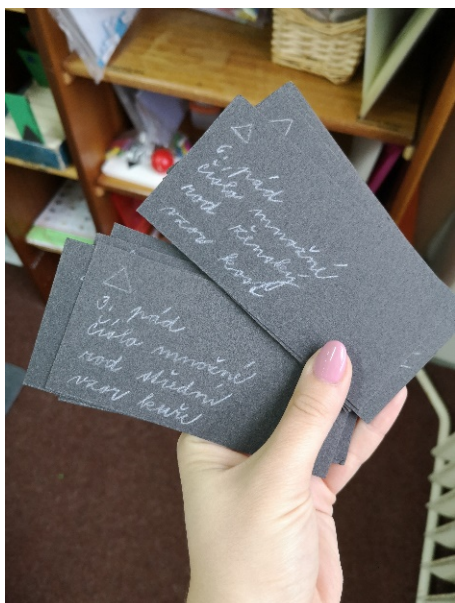 6. pád
číslo množné
rod ženský
vzor kost
3. pád
číslo množné
rod střední
vzor kuře